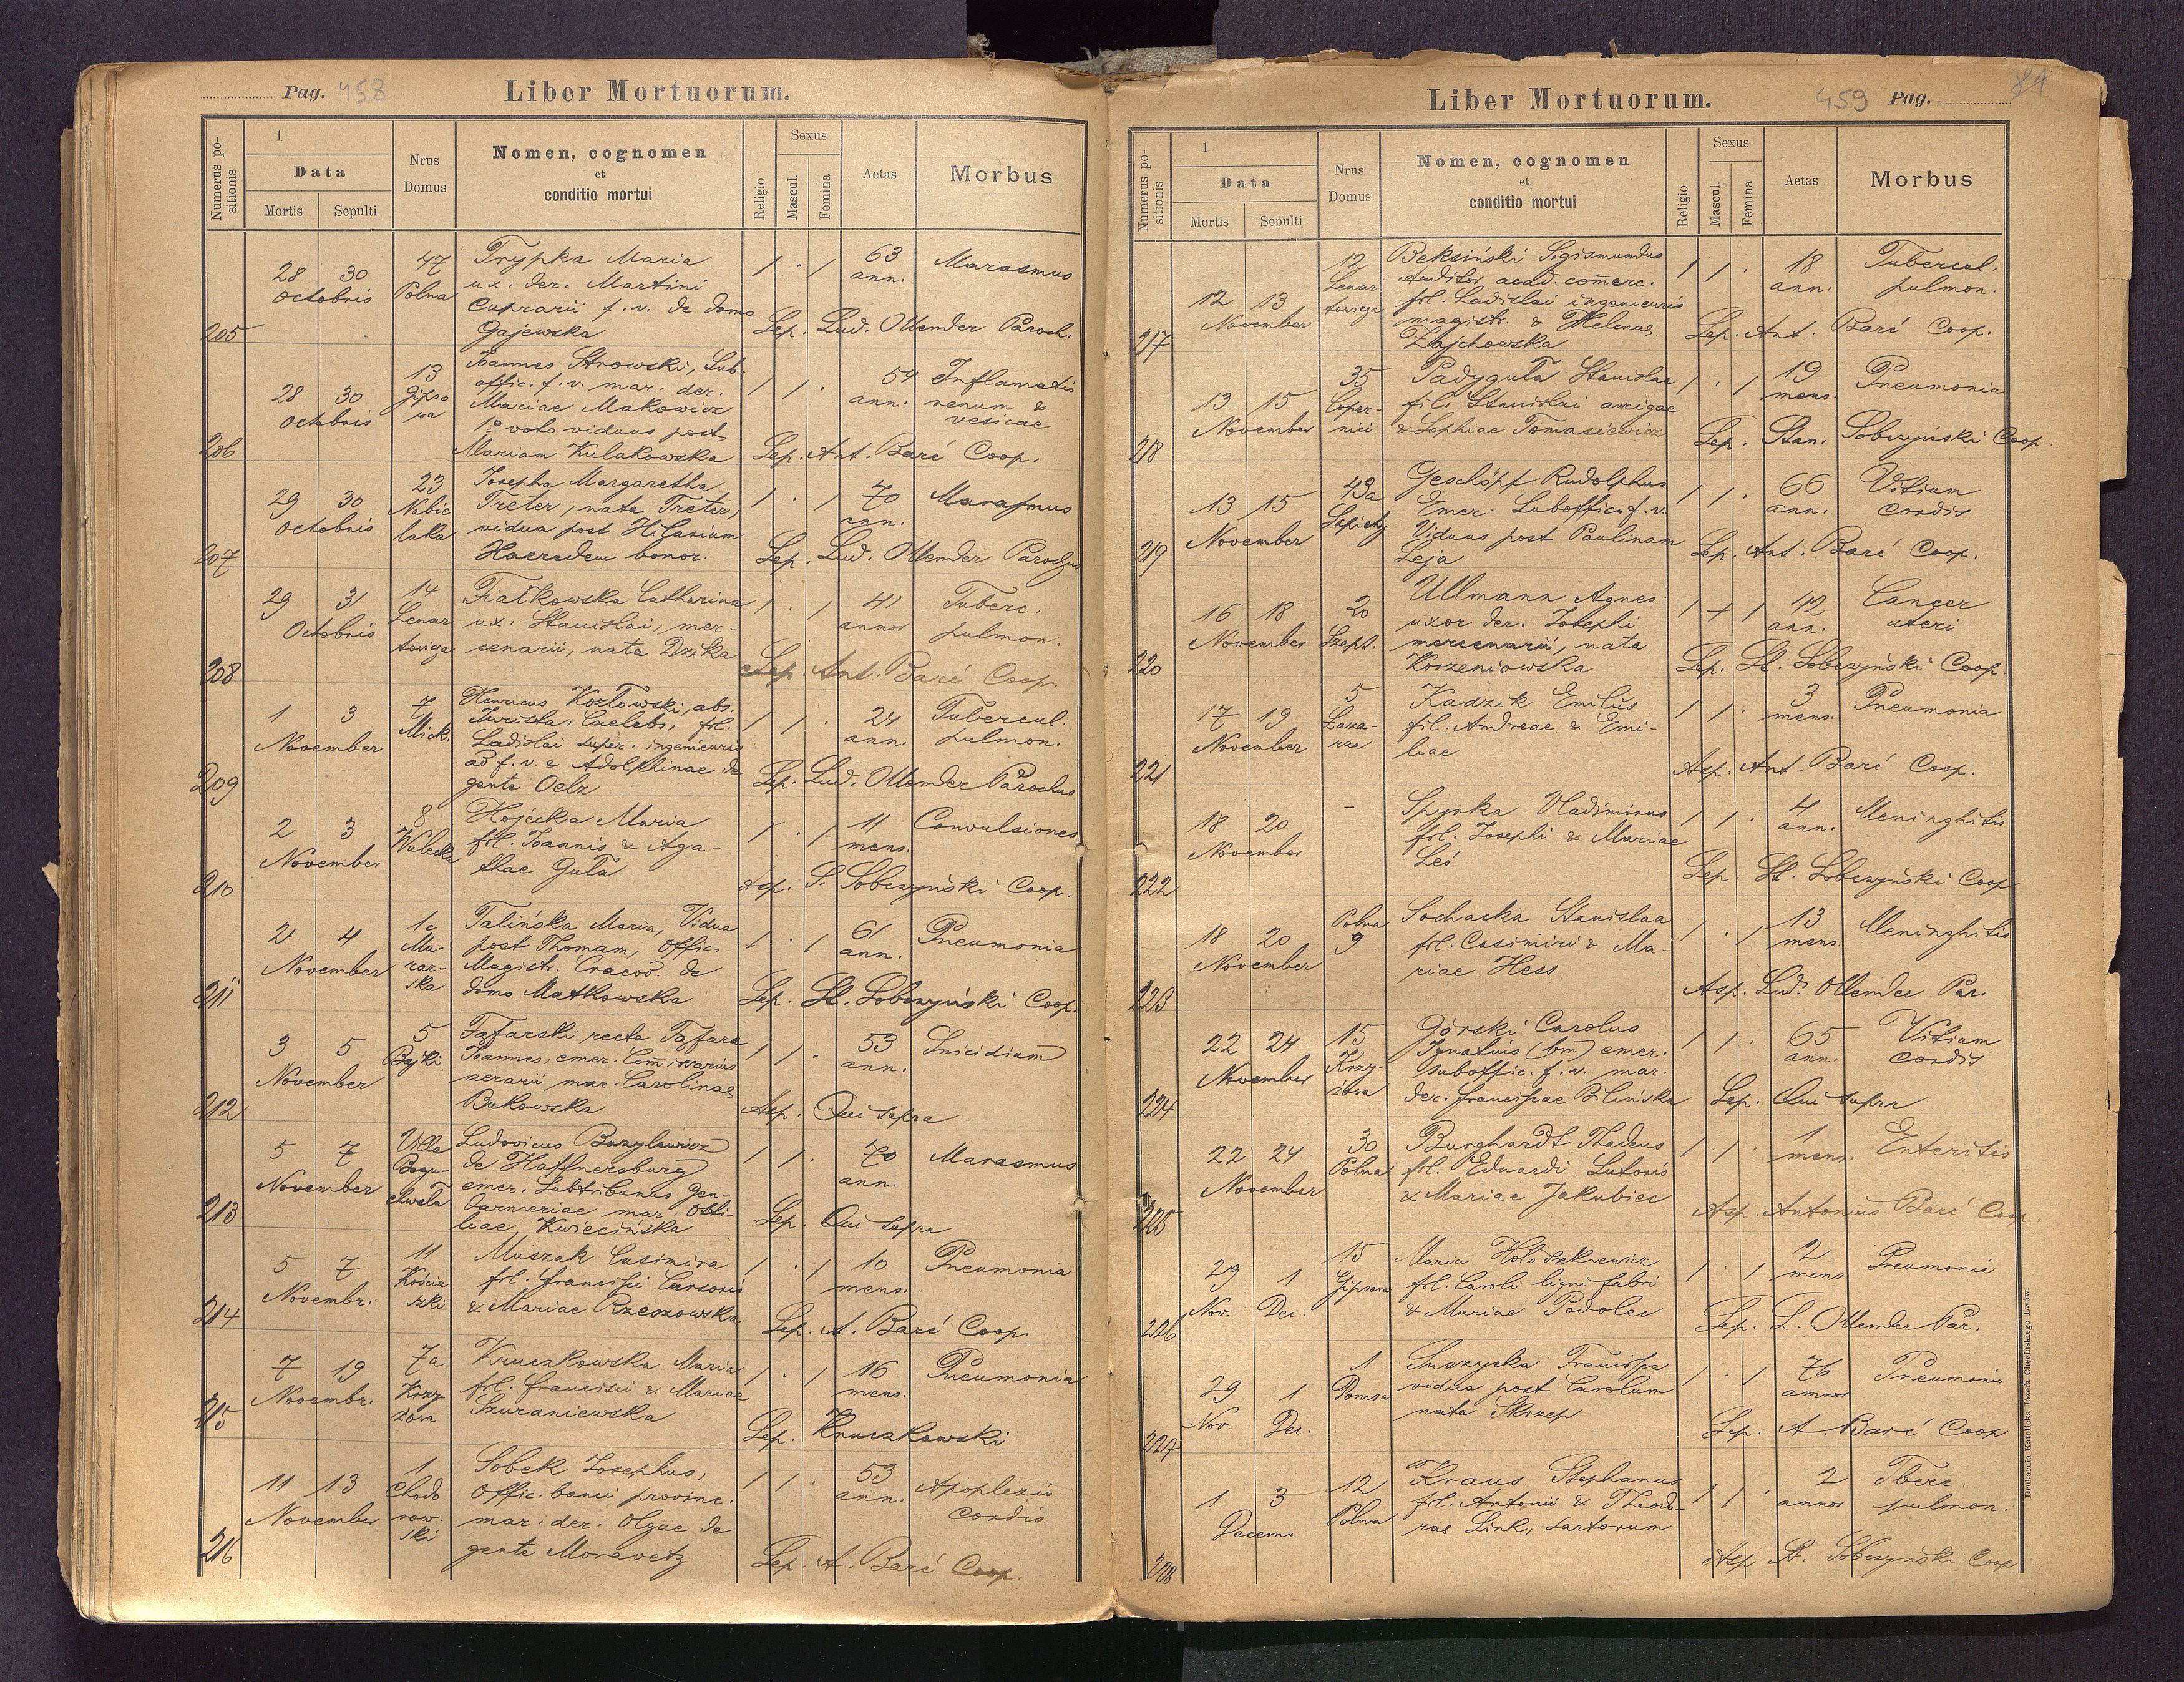 Pag. 458
Liber Mortuorum.
Numerus positionis
1
Data
Mortis
Sepulti
Nrus Domus
Nomen, cognomen
et
conditio mortui
Religio
Sexus
Mascul.
Femina
Aetas
Morbus
205
28 30
Octobris
47
Polna
Trypka Maria
ux. der. Martini
Cuprarii f. v. de domo
Gajewska
1 · 1
63
ann.
Marasmus
Sep. Lud. Ollender Paroch.
206
28 30
Octobris
13
Gipsowa
Joannes Strowski, Sub
offic. f. v. mar. der.
Mariae Makowicz
1º voto viduus post
Mariam Kulakowska
1 1 ·
54
ann.
Inflamatis
renum &
vesicae
Sep. Ant. Baré Coop.
207
29 30
Octobris
23
Nabie
laka
Josepha Margaretha
Treter, nata Treter,
vidua post Hilarium
Haeredem bonor.
1 · 1
70
ann.
Marasmus
Sep. Lud. Ollender Parochus
208
29 31
Octobris
14
Lenar
towicza
Fiałkowska Catharina
ux. Stanislai, mer-
cenarii, nata Dzika
1 · 1
41
annor
Tuberc.
pulmon.
Sep. Ant. Baré Coop.
209
1 3
November
7
Mick.
Henricus Kozłowski, abs.
Jurista, Caelebs, fil.
Ladislai super. ingenieuris
ad f. v. & Adolphinae de
gente Oelz
1 1 ·
24
ann.
Tubercul.
pulmon.
Sep. Lud. Ollender Parochus
210
2 3
November
8
Wulecka
Hojecka Maria
fil. Joannis & Aga-
thae Guła
1 · 1
11
mens.
Convulsiones
Asp. S. Sobczyński Coop.
211
2 4
November
1c
Mu-
rar-
ska
Talińska Maria, Vidua
post Thomam, offic.
Magistr. Cracov. de
domo Matkowska
1 · 1
61
ann.
Pneumonia
Sep. St. Sobczyński Coop.
212
3 5
November
5
Bajki
Fafarski recte Fafara
Joannes, emer. Comissarius
aerarii mar. Carolinae
Bukowska
1 1 ·
53
ann.
Suicidium
Asp. Qui supra
213
5 7
November
Villa
Bogu-
chwała
Ludovicus Bazylewicz
de Haffnersburg
emer. Subtribunus Gen-
darmeriae mar. Otti-
liae Kwiecińska
1 1 ·
70
ann.
Marasmus
Sep. Qui supra
214
5 7
Novembr.
11
Kościu
szki
Muszak Casimira
fil. Francisci Cursoris
& Mariae Rzeszowska
1 · 1
10
mens.
Pneumonia
Sep. A. Baré Coop.
215
7 19
Novembr.
7a
Krzy
żowa
Kruczkowska Maria
fil. Francisci & Mariae
Szuraniewska
1 · 1
16
mens.
Pneumonia
Sep. Kruczkowski
216
11 13
November
1
Chodo
row.
ski
Sobek Josephus,
Offic. banci provinc.
mar. der. Olgae de
gente Moravetz
1 1 ·
53
ann.
Apoplexis
cordis
Sep. A. Baré Coop.
Liber Mortuorum.
459 Pag. 84
Numerus positionis
1
Data
Mortis
Sepulti
Nrus Domus
Nomen, cognomen
et
conditio mortui
Religio
Sexus
Mascul.
Femina
Aetas
Morbus
217
12 13
November
12
Lenar
towicza
Beksiński Sigismundus
Auditor acad. comerc.
fil. Ladislai ingenieuris
magistr. & Helenae
Zajchowska
1 1 ·
18
ann.
Tubercul.
pulmon.
Sep. Ant. Baré Coop.
218
13 15
November
35
Coper-
nici
Padyguła Stanislaa
fil. Stanislai aurigae
& Sophiae Tomasiewicz
1 · 1
19
mens.
Pneumonia
Sep. Stan. Sobczyński Coop.
219
13 15
November
43a
Sapiehy
Geschöpf Rudolphus
Emer. Suboffic. f. v.
Viduus post Paulinam
Leja
1 1 ·
66
ann.
Vitium
cordis
Sep. Ant. Baré Coop.
220
16 18
November
20
Szept.
Ullmann Agnes
uxor der. Josephi
mercenarii, nata
Korzeniowska
1 + 1
42
ann.
Cancer
uteri
Sep. St. Sobczyński Coop.
221
17 19
November
5
Łaza-
rza
Kadzik Emilus
fil. Andreae & Emi-
liae
1 1 ·
3
mens.
Pneumonia
Asp. Ant. Baré Coop.
222
18 20
November
-
Spyrka Vladimirus
fil. Josephi & Mariae
Leś
1 1 ·
4
ann.
Meninghitis
Sep. St. Sobczyński Coop
223
18 20
November
Polna
9
Sochacka Stanislaa
fil. Casimiri & Ma-
riae Hess
1 · 1
13
mens.
Meninghitis
Asp. Lud. Ollender Par.
224
22 24
November
15
Krzy-
żowa
Górski Carolus
Ignatius (bm) emer.
suboffic. f. v. mar.
der. Franciscae Bilińska
1 1 ·
65
ann.
Vitium
cordis
Sep. Qui supra
225
22 24
November
30
Polna
Burghardt Thadeus
fil. Eduardi Sutoris
& Mariae Jakubiec
1 1 ·
1
mens.
Enteritis
Asp. Antonius Baré Coop.
226
29 1
Nov. Dec.
15
Gipsowa
Maria Hołoszkiewicz
fil. Caroli ligni fabri
& Mariae Podolec
1 · 1
2
mens
Pneumonia
Sep. L. Ollender Par.
227
29 1
Nov. Dec.
1
Suszycka Francisca
vidua post Carolum
nata Skrzep
1 · 1
76
annor
Pneumonia
Sep. A. Baré Coop
208
1 3
Decem.
12
Polna
Kraus Stephanus
fil. Antonii & Theodo-
rae Link, sartorum
1 1 ·
2
annor
Tberc.
pulmon.
Asp. St. Sobczyński Coop
Drukarnia Katolicka Józefa Chęcińskiego Lwów.